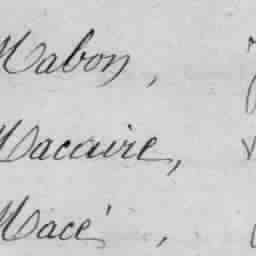 Mabon,
Macaire,
Macé,